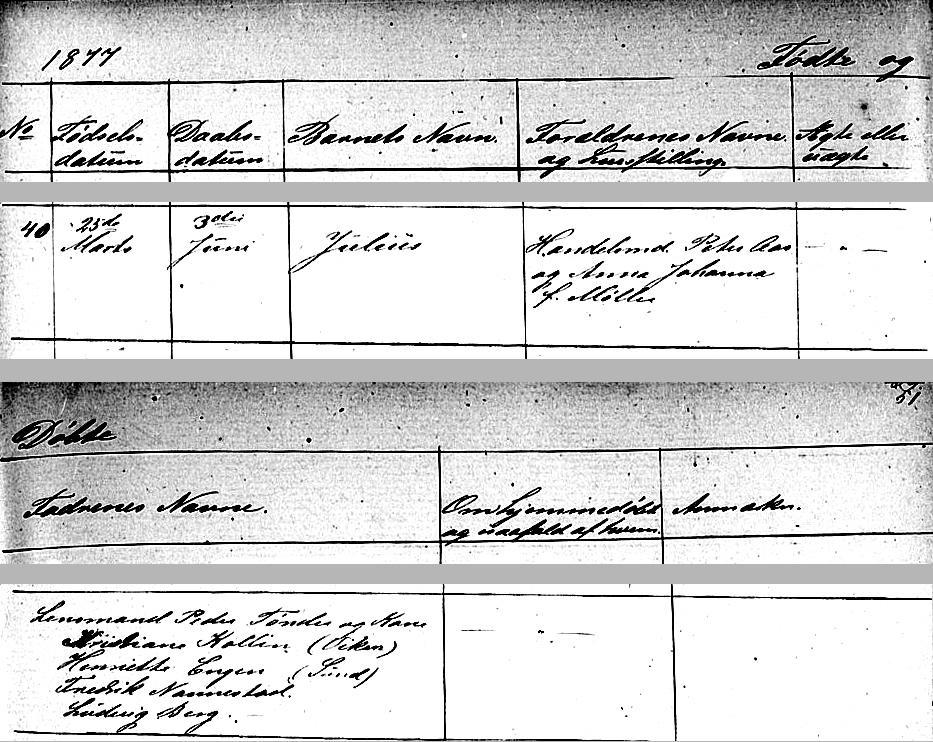 1877 Fødte og
No Fødsels- Daabs- Barnets Navn. Forældrenes Navne Ægte eller
datum datum og Livsstilling. uægte.
40 25de 3die
Marts Juni Julius Handelsmd. Peter Aas — " —
og Anna Johanna
f. Møller
51.
Døbte
Fadrenes Navne. Om hjemmedøbt Anmærkn.
og i saafald af hvem.
Lensmand Peder Tønder og Kone
Kristiane Kollin (Viken) — " —
Henriette Engen (Sund)
Fredrik Nannestad.
Ludvig Berg.